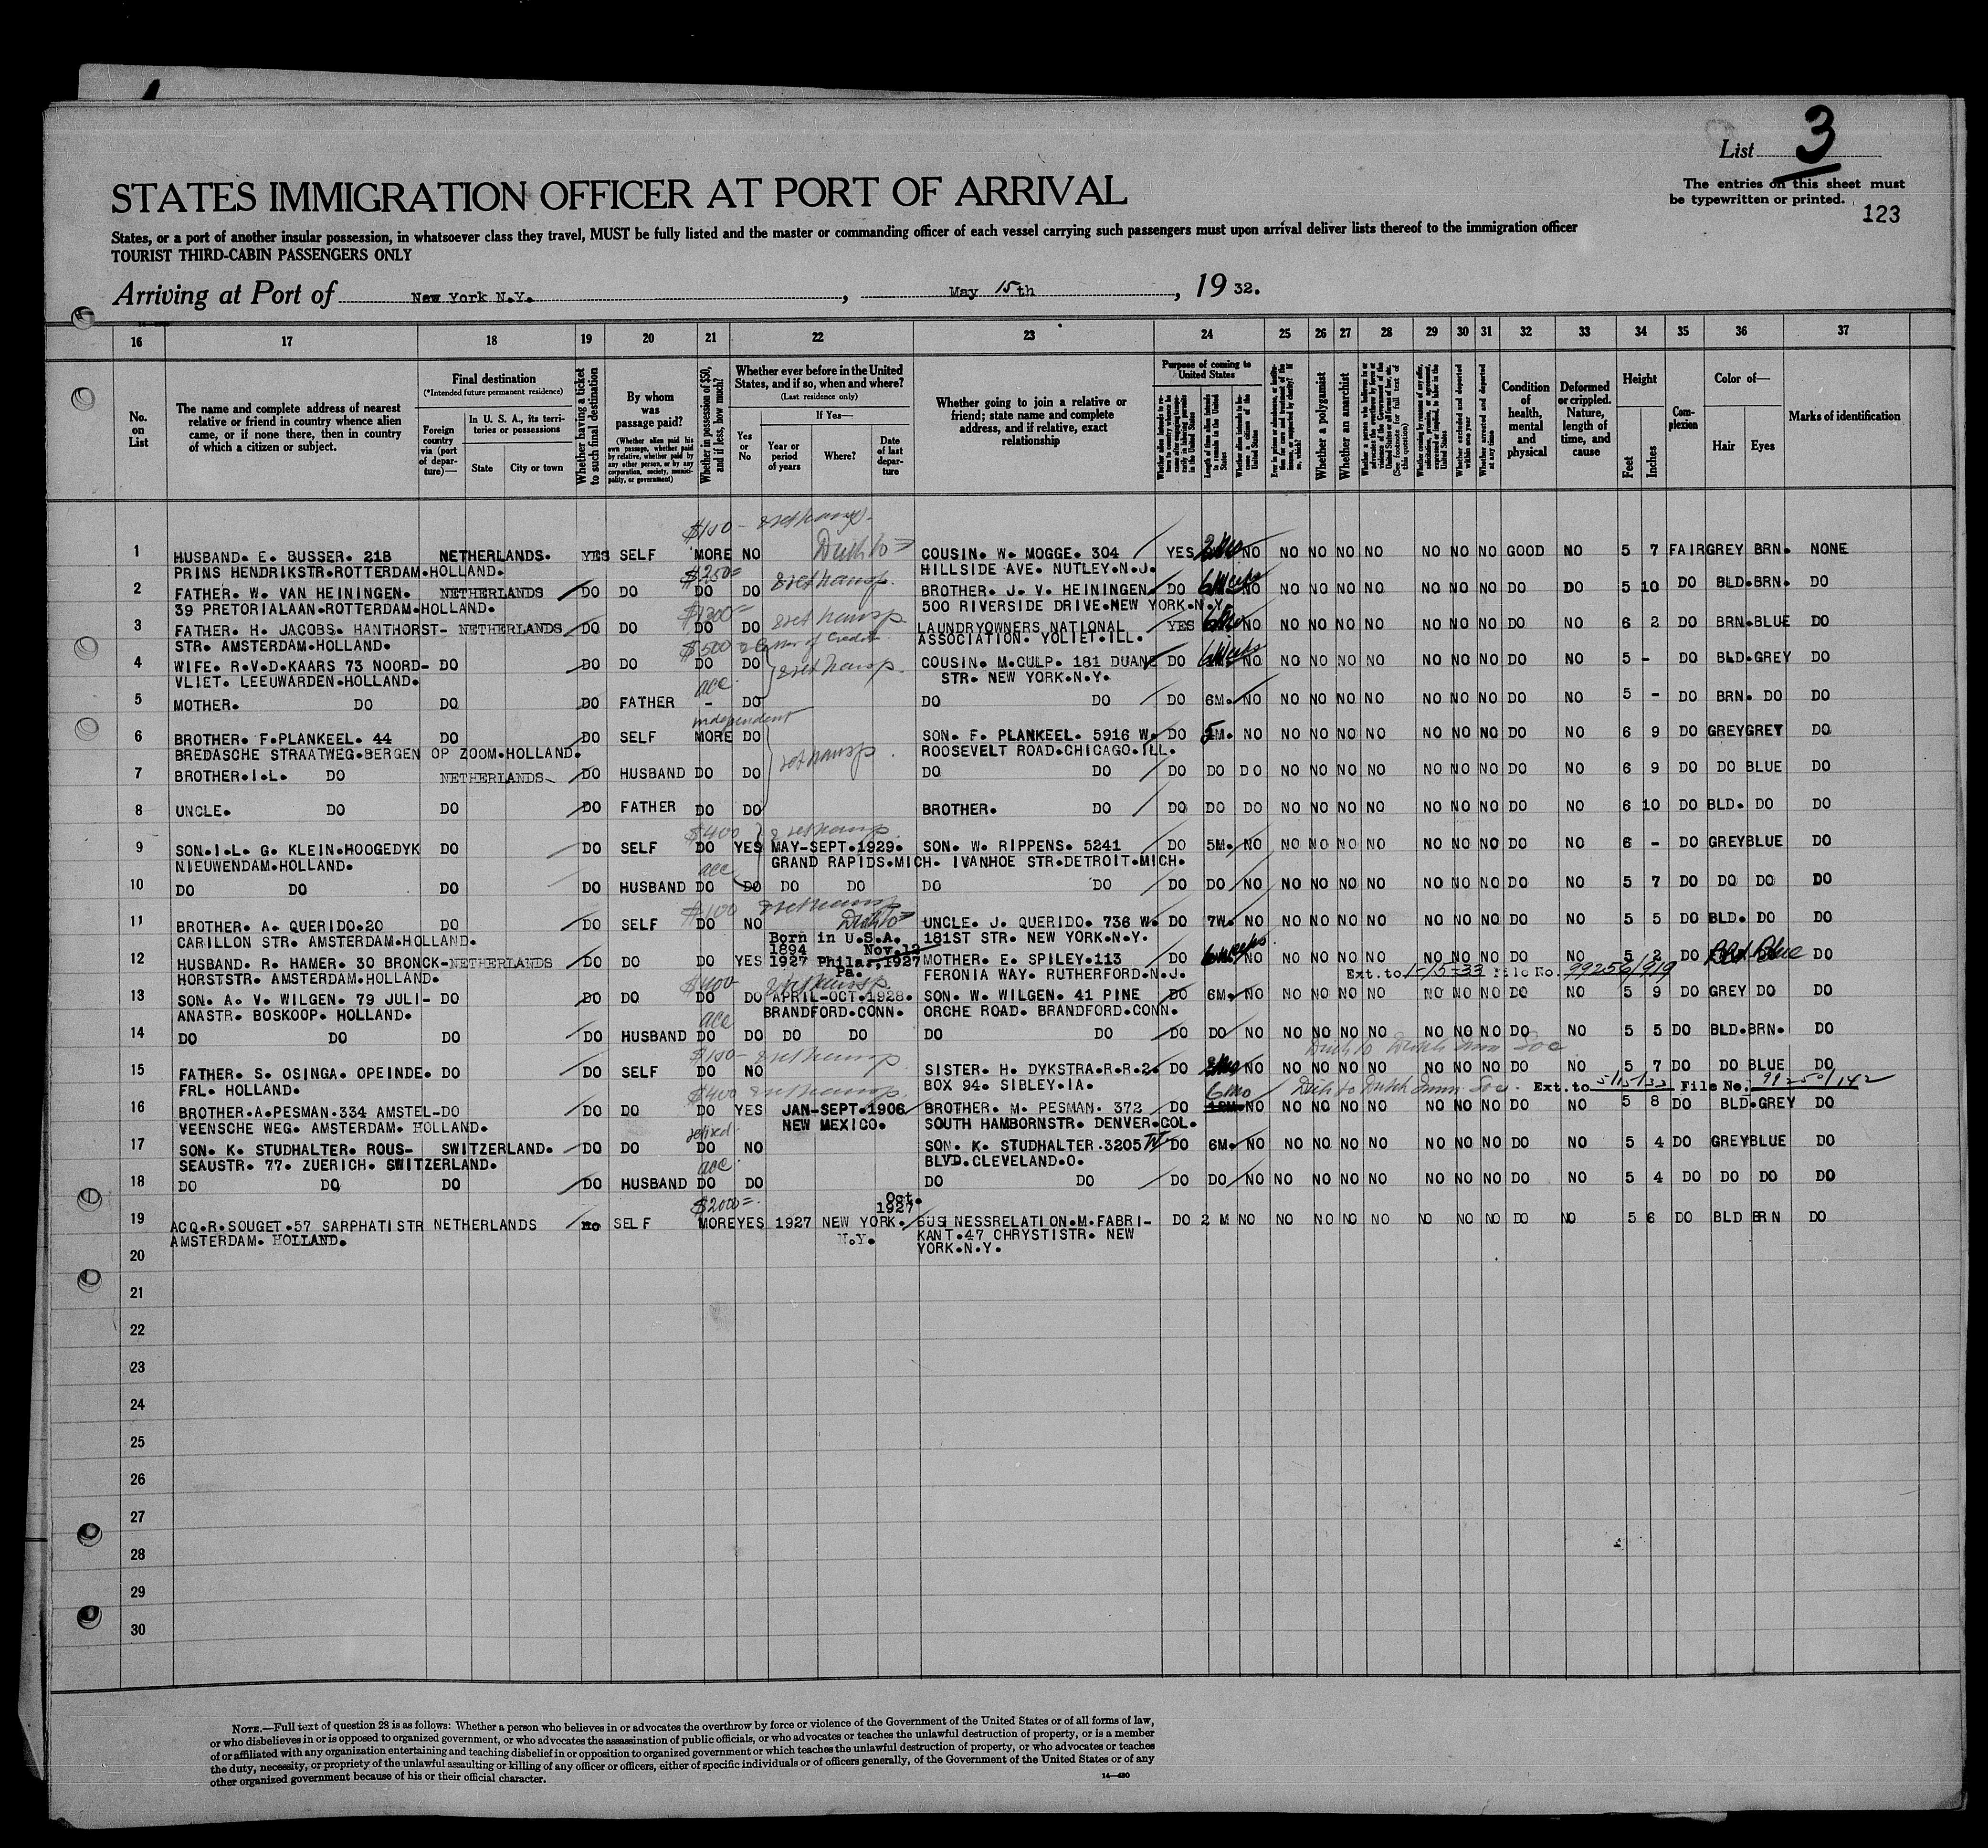 List 3
STATES IMMIGRATION OFFICER AT PORT OF ARRIVAL
The entries on this sheet must
be typewritten or printed.
123
States, or a port of another insular possession, in whatsoever class they travel, MUST be fully listed and the master or commanding officer of each vessel carrying such passengers must upon arrival deliver lists thereof to the immigration officer
TOURIST THIRD-CABIN PASSENGERS ONLY
Arriving at Port of New York N.Y., May 15th, 19 32.
16 17 18 19 20 21 22 23 24 25 26 27 28 29 30 31 32 33 34 35 36 37
No. on List
The name and complete address of nearest relative or friend in country whence alien came, or if none there, then in country of which a citizen or subject.
Final destination
(*Intended future permanent residence)
Foreign country via (port of departure)—
In U. S. A., its territories or possessions
State
City or town
Whether having a ticket to such final destination
By whom was passage paid?
(Whether alien paid his own passage, whether paid by relative, whether paid by any other person, or by any corporation, society, municipality, or government)
Whether in possession of $50, and if less, how much?
Whether ever before in the United States, and if so, when and where?
(Last residence only)
Yes or No
If Yes—
Year or period of years
Where?
Date of last departure
Whether going to join a relative or friend; state name and complete address, and if relative, exact relationship
Purpose of coming to United States
Length of time alien intends to remain in the United States
Whether alien intends to become a citizen of the United States
Whether a polygamist
Whether an anarchist
(See footnote for full text of this question)
Whether excluded and deported within one year
Whether arrested and deported at any time
Condition of health, mental and physical
Deformed or crippled. Nature, length of time, and cause
Height
Feet
Inches
Complexion
Color of—
Hair
Eyes
Marks of identification
$150 - & ret transp.
1 HUSBAND. E. BUSSER. 21B NETHERLANDS. YES SELF MORE NO COUSIN. W. MOGGE. 304 YES 2 Mo NO NO NO NO NO NO NO NO GOOD NO 5 7 FAIR GREY BRN. NONE
PRINS HENDRIKSTR.ROTTERDAM.HOLLAND. $250= HILLSIDE AVE. NUTLEY.N.J.
2 FATHER. W. VAN HEININGEN. NETHERLANDS DO DO DO DO & ret transp. BROTHER. J. V. HEININGEN DO 6 Weeks NO NO NO NO NO NO NO NO DO DO 5 10 DO BLD. BRN. DO
39 PRETORIALAAN.ROTTERDAM.HOLLAND. 500 RIVERSIDE DRIVE.NEW YORK.N.Y.
3 FATHER. H. JACOBS. HANTHORST- NETHERLANDS DO DO DO DO & ret transp LAUNDRYOWNERS NATIONAL YES 6 Mo NO NO NO NO NO NO NO NO DO NO 6 2 DO BRN. BLUE DO
STR. AMSTERDAM.HOLLAND. $500 Letter of Credit ASSOCIATION. YOLIET.ILL.
4 WIFE. R.V.D.KAARS 73 NOORD- DO DO DO DO DO & ret transp. COUSIN. M.CULP. 181 DUANE DO 6 Weeks NO NO NO NO NO NO NO NO DO NO 5 - DO BLD. GREY DO
VLIET. LEEUWARDEN.HOLLAND. acc STR. NEW YORK.N.Y.
5 MOTHER. DO DO DO FATHER - DO DO DO DO 6M. NO NO NO NO NO NO NO NO DO NO 5 - DO BRN. DO DO
independent
6 BROTHER. F.PLANKEEL. 44 DO DO SELF MORE DO SON. F. PLANKEEL. 5916 W. DO 5M. NO NO NO NO NO NO NO NO DO NO 6 9 DO GREY GREY DO
BREDASCHE STRAATWEG.BERGEN OP ZOOM.HOLLAND. ret transp ROOSEVELT ROAD.CHICAGO.ILL.
7 BROTHER.I.L. DO NETHERLANDS DO HUSBAND DO DO DO DO DO DO DO NO NO NO NO NO NO NO DO NO 6 9 DO DO BLUE DO
8 UNCLE. DO DO DO FATHER DO DO BROTHER. DO DO DO DO NO NO NO NO NO NO NO DO NO 6 10 DO BLD. DO DO
$400 & ret transp.
9 SON.I.L. G. KLEIN.HOOGEDYK DO DO SELF DO YES MAY-SEPT.1929. SON. W. RIPPENS. 5241 DO 5M. NO NO NO NO NO NO NO NO DO NO 6 - DO GREY BLUE DO
NIEUWENDAM.HOLLAND. acc GRAND RAPIDS.MICH. IVANHOE STR.DETROIT.MICH.
10 DO DO DO DO HUSBAND DO DO DO DO DO DO DO DO NO NO NO NO NO NO NO NO DO NO 5 7 DO DO DO DO
$100 & ret transp
11 BROTHER. A. QUERIDO.20 DO DO SELF DO NO UNCLE. J. QUERIDO. 736 W. DO 7W. NO NO NO NO NO NO NO NO DO NO 5 5 DO BLD. DO DO
CARILLON STR. AMSTERDAM.HOLLAND. Born in U.S.A. 181ST STR. NEW YORK.N.Y.
1894 Nov.12
12 HUSBAND. R. HAMER. 30 BRONCK- NETHERLANDS DO DO DO YES 1927 Phila., 1927 MOTHER. E. SPILEY.113 DO 6 weeks NO NO NO NO NO NO NO NO DO NO 5 2 DO Bld Blue DO
HORSTSTR. AMSTERDAM.HOLLAND. Pa. FERONIA WAY. RUTHERFORD.N.J. Ext. to 1-15-33 File No. 99256/919
$400 & ret transp
13 SON. A. V. WILGEN. 79 JULI- DO DO DO DO DO APRIL-OCT.1928. SON. W. WILGEN. 41 PINE DO 6M. NO NO NO NO NO NO NO NO DO NO 5 9 DO GREY DO DO
ANASTR. BOSKOOP. HOLLAND. acc BRANDFORD.CONN. ORCHE ROAD. BRANDFORD.CONN.
14 DO DO DO DO HUSBAND DO DO DO DO DO DO DO DO NO NO NO NO NO NO NO NO DO NO 5 5 DO BLD. BRN. DO
$150- & ret transp
15 FATHER. S. OSINGA. OPEINDE. DO DO SELF DO NO SISTER. H. DYKSTRA.R.R.2. DO NO NO NO NO NO NO NO NO DO NO 5 7 DO DO BLUE DO
FRL. HOLLAND. $400 & ret transp. BOX 94. SIBLEY.IA. 6 Mo Ext. to 5/15/33 File No. 99250/142
16 BROTHER.A.PESMAN.334 AMSTEL- DO DO DO DO YES JAN-SEPT.1906 BROTHER. M. PESMAN. 372 DO 12M. NO NO NO NO NO NO NO NO DO NO 5 8 DO BLD. GREY DO
VEENSCHE WEG. AMSTERDAM. HOLLAND. NEW MEXICO. SOUTH HAMBORNSTR. DENVER.COL.
retired
17 SON. K. STUDHALTER. ROUS- SWITZERLAND. DO DO DO NO SON. K. STUDHALTER.3205 W DO 6M. NO NO NO NO NO NO NO NO DO NO 5 4 DO GREY BLUE DO
SEAUSTR. 77. ZUERICH. SWITZERLAND. acc BLVD.CLEVELAND.O.
18 DO DO DO DO HUSBAND DO DO DO DO DO DO NO NO NO NO NO NO NO NO DO NO 5 4 DO DO DO DO
$2000=. Oct.
1927
19 ACQ.R.SOUGET.57 SARPHATISTR NETHERLANDS no SELF MORE YES 1927 NEW YORK. BUSINESSRELATION.M.FABRI- DO 2 M NO NO NO NO NO NO NO NO DO NO 5 6 DO BLD BRN DO
AMSTERDAM. HOLLAND. N.Y. KANT.47 CHRYSTISTR. NEW
20 YORK.N.Y.
21
22
23
24
25
26
27
28
29
30
NOTE.—Full text of question 28 is as follows: Whether a person who believes in or advocates the overthrow by force or violence of the Government of the United States or of all forms of law,
or who disbelieves in or is opposed to organized government, or who advocates the assassination of public officials, or who advocates or teaches the unlawful destruction of property, or is a member
of or affiliated with any organization entertaining and teaching disbelief in or opposition to organized government or which teaches the unlawful destruction of property, or who advocates or teaches
the duty, necessity, or propriety of the unlawful assaulting or killing of any officer or officers, either of specific individuals or of officers generally, of the Government of the United States or of any
other organized government because of his or their official character.
14—430